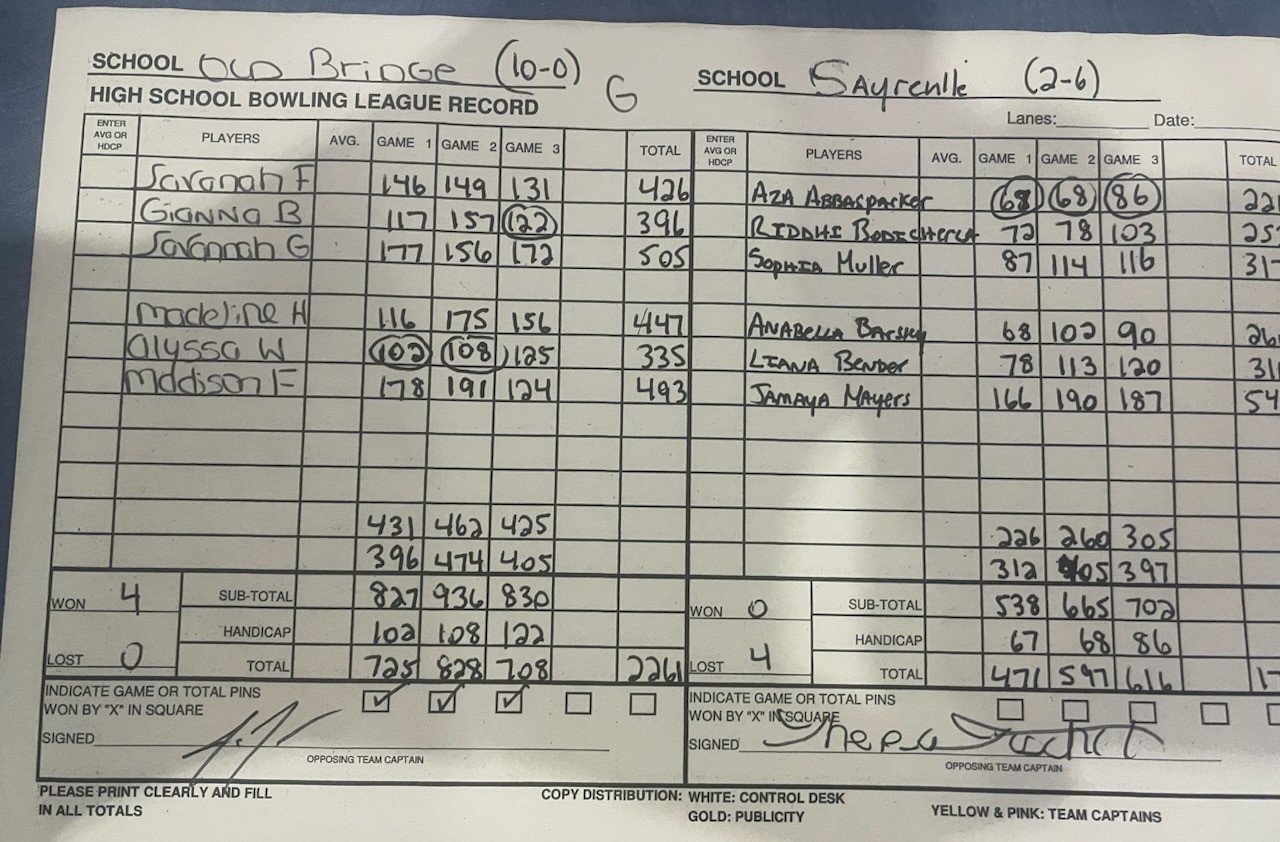 SCHOOL OLD Bridge (10-0) G
HIGH SCHOOL BOWLING LEAGUE RECORD
ENTER AVG OR HDCP PLAYERS AVG. GAME 1 GAME 2 GAME 3 TOTAL
Savanah F 146 149 131 426
Gianna B 117 157 122 396
Savannah G 177 156 172 505
Madeline H 116 175 156 447
Alyssa W 102 108 125 335
Maddison F 178 191 124 493
431 462 425
396 474 405
WON 4 SUB-TOTAL 827 936 830
HANDICAP 102 108 122
LOST 0 TOTAL 725 828 708 2261
INDICATE GAME OR TOTAL PINS
WON BY "X" IN SQUARE
SIGNED
OPPOSING TEAM CAPTAIN
SCHOOL Sayreville (2-6)
Lanes: Date:
ENTER AVG OR HDCP PLAYERS AVG. GAME 1 GAME 2 GAME 3 TOTAL
AZA ABBASPARKER 68 86
RIDDHI BODICHERLA 72 78 103
SOPHIA Muller 87 114 116
ANABELLA BARSKY 68 102 90
LIANA Bender 78 113 120
JAMAYA MAyers 166 190 187
226 260 305
312 405 397
WON 0 SUB-TOTAL 538 665 702
HANDICAP 67 68 86
LOST 4 TOTAL 471 597 616
INDICATE GAME OR TOTAL PINS
WON BY "X" IN SQUARE
SIGNED
OPPOSING TEAM CAPTAIN
PLEASE PRINT CLEARLY AND FILL
IN ALL TOTALS
COPY DISTRIBUTION: WHITE: CONTROL DESK
GOLD: PUBLICITY
YELLOW & PINK: TEAM CAPTAINS